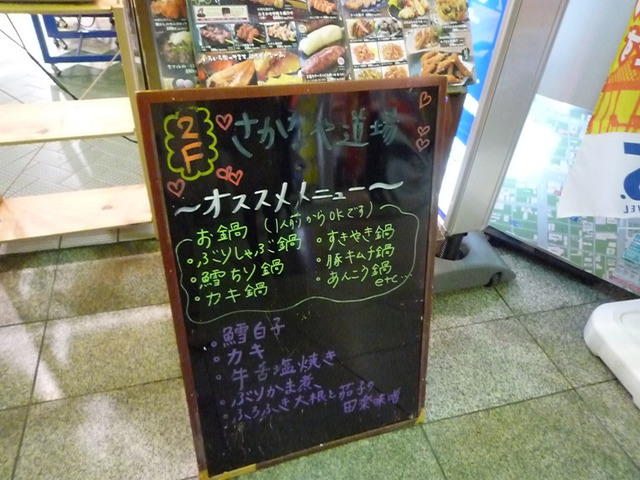 2F さかなや道場
～オススメメニュー～
お鍋 (1人前からOKです)
・ぶりしゃぶ鍋
・鱈ちり鍋
・カキ鍋
・すきやき鍋
・豚キムチ鍋
・あんこう鍋
etc…
・鱈白子
・カキ
・牛舌塩焼き
・ぶりかま煮
・ふろふき大根と茄子の
田楽味噌